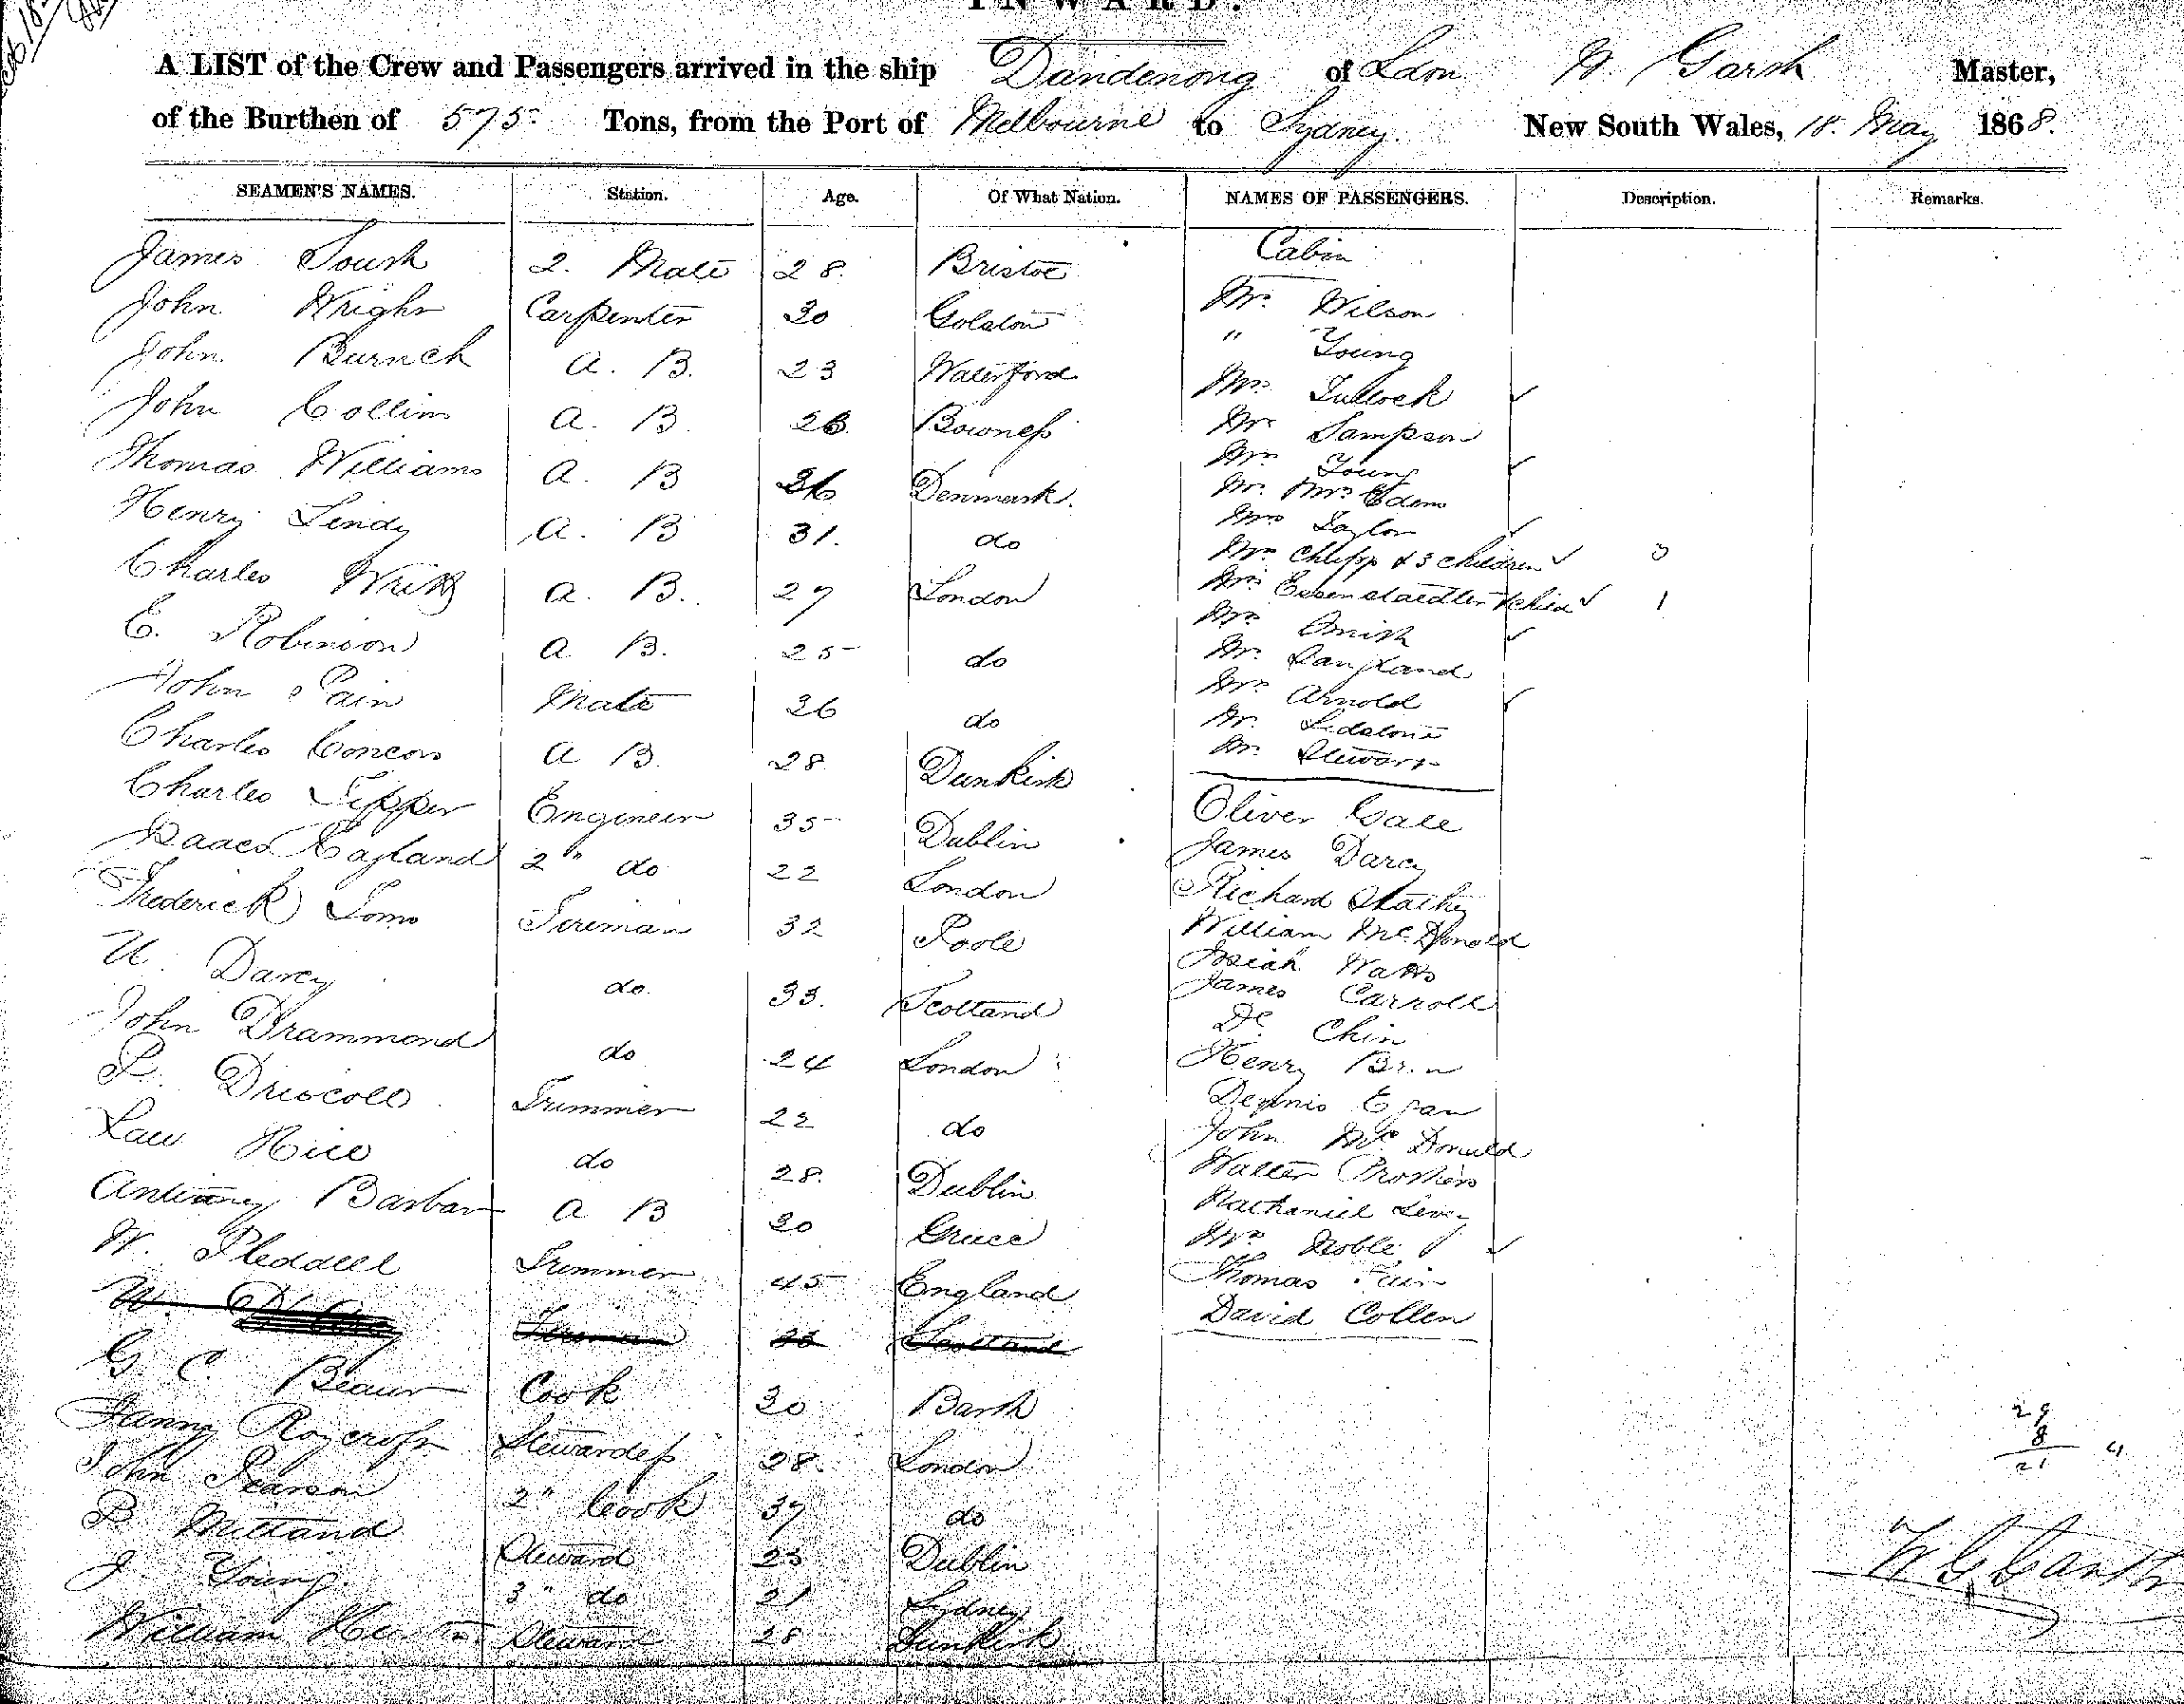 INWARD.
A LIST of the Crew and Passengers arrived in the ship Dandenong of Lon W. Garth Master,
of the Burthen of 575 Tons, from the Port of Melbourne to Sydney New South Wales, 18. May 1868.
SEAMEN'S NAMES. Station. Age. Of What Nation. NAMES OF PASSENGERS. Description. Remarks.
James 2. Mate 28. Bristol
John Wright Carpenter 30
John A. B. 23 Waterford
John Collins A. B. Bowness
Thomas Williams A. B Denmark.
Henry Lindy A. B 31. do
Charles A. B. 27 London
E. Robinson A. B. 25 do
John Pain Mate 36 do
Charles A B. 28 Dunkirk
Charles Tipper Engineer 35 Dublin
Isaac 2" do 22 London
Frederick Toms Fireman 32 Poole
W. Darcy do. 33. Scotland
John Drammond do 24 London
P. Driscoll Trimmer 22 do
Law Hice do 28. Dublin
Antiony Barbar A B 30 Greece
W. Pleddell Trimmer 45 England
W. Fireman Scotland
G C Cook 30 Barth
Fanny Roycroft Stewardess 28. London
John Pearson 2" Cook 37 do
P Mittand Steward 23 Dublin
J Young. 3" do 21 Sydney
William Steward 28 Dunkirk
Cabin
Mr. Wilson
" Young
Mrs. Tullock ✓
Mr Sampson
Mrs Young ✓
Mr. Mrs Edem
Mrs Taylor ✓
Mrs & 3 children ✓ 3
Mrs child ✓ 1
Mrs Smith ✓
Mr. Langland
Mrs Arnold ✓
Mr.
Mr. Stewart
Oliver Gale
James Darcy
Richard
William McDonald
Josiah Watts
James Carroll
De Chin
Henry
Dennis Egan
John McDonald
Walter Prothero
Nathaniel
Mrs Noble ✓
Thomas
David Collen
29
8
21 4
W G Garth